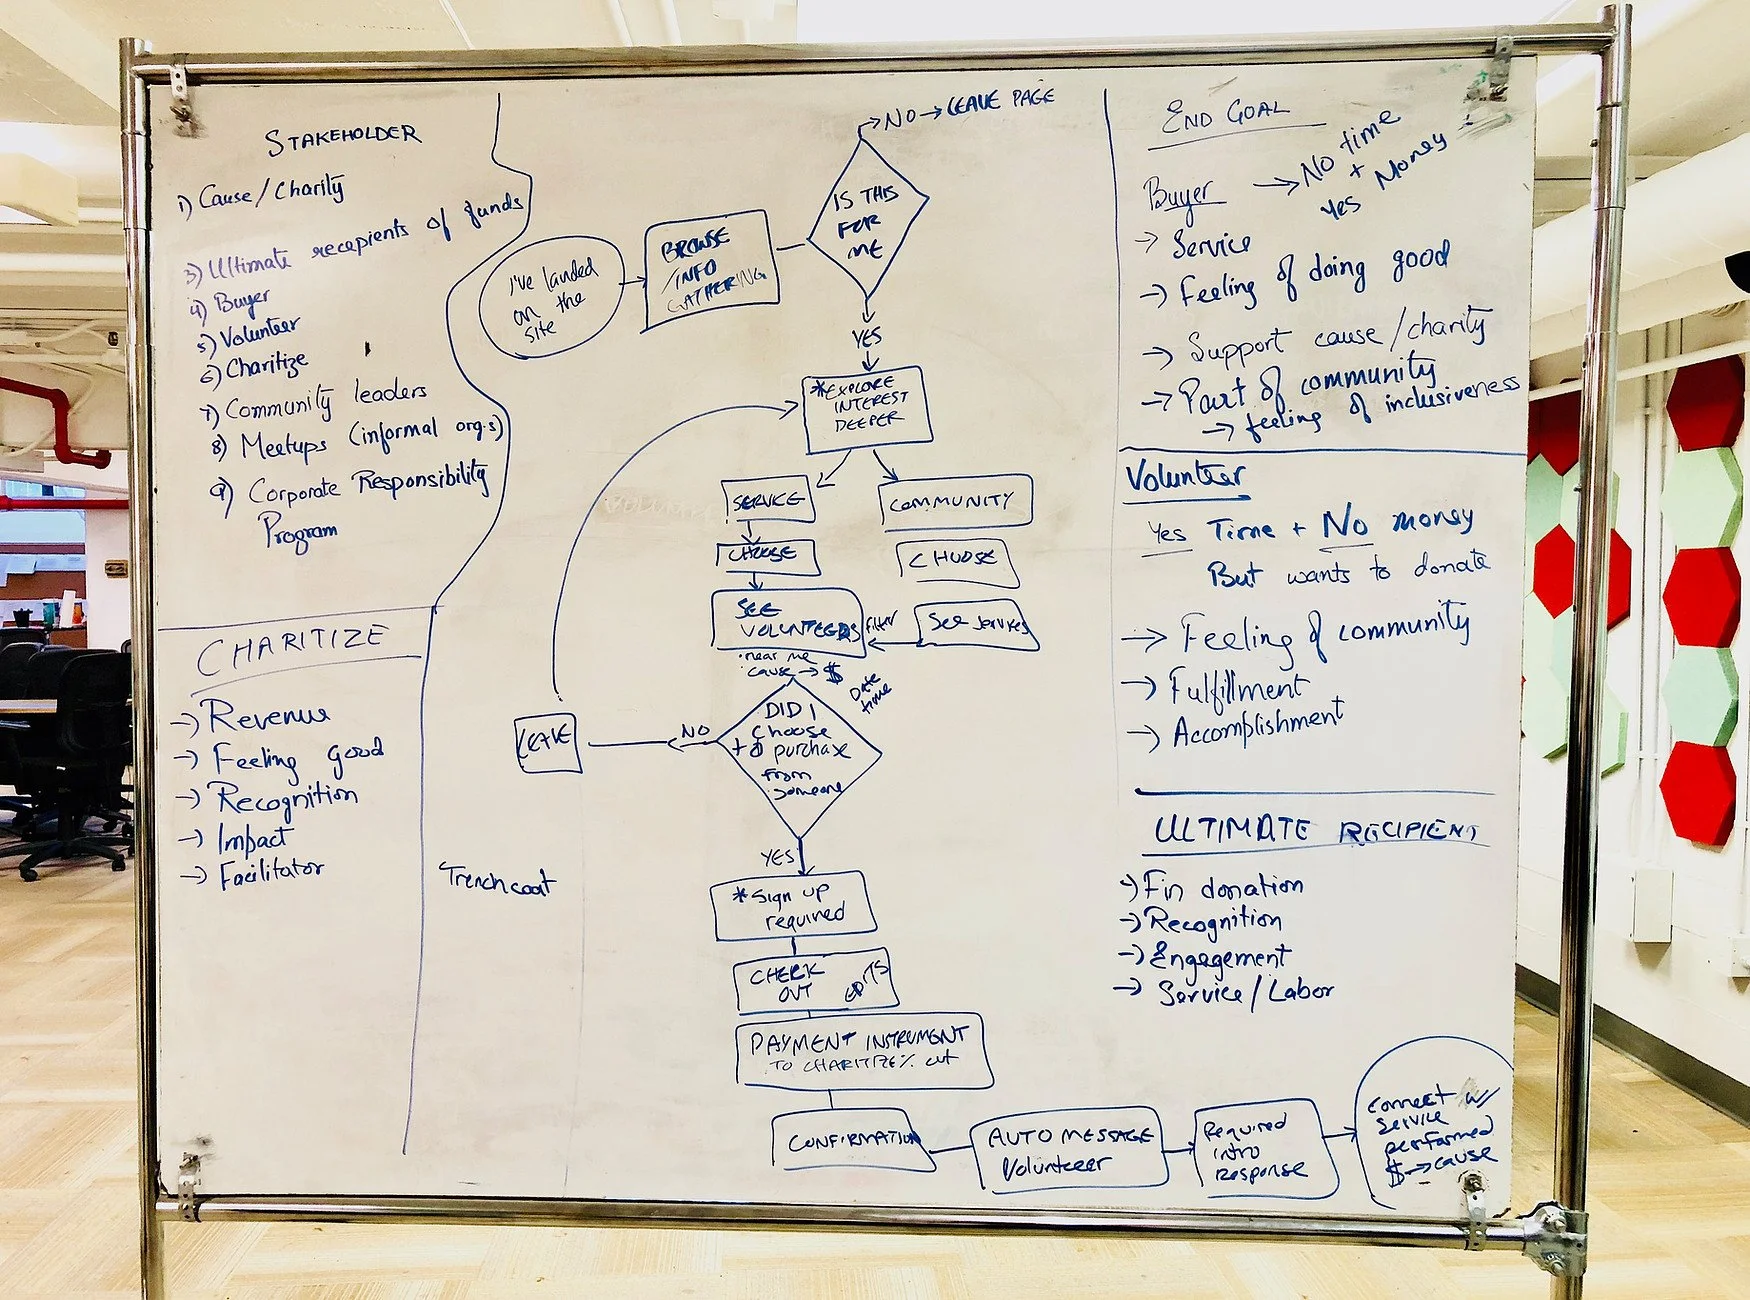 STAKEHOLDER
1) Cause/Charity
3) Ultimate recepients of funds
4) Buyer
5) Volunteer
6) Charitize
7) Community leaders
8) Meetups (informal org.s)
9) Corporate Responsibility
Program
CHARITIZE
→ Revenue
→ Feeling good
→ Recognition
→ Impact
→ Facilitator
Trenchcoat
I've landed
on the
site
BROWSE
/INFO
GATHERING
IS THIS
FOR
ME
→ NO → LEAVE PAGE
YES
*EXPLORE
INTEREST
DEEPER
SERVICE
CHOOSE
SEE
VOLUNTEERS
COMMUNITY
CHOOSE
See services
filter
. near me
. cause → $
Date
time
DID I
choose
to purchase
from
someone
NO
LEAVE
YES
*Sign up
required
CHECK
OUT
PAYMENT INSTRUMENT
TO CHARITIZE % cut
CONFIRMATION
AUTO MESSAGE
Volunteer
Required
intro
Response
connect w/
service
performed
$ → cause
END GOAL
Buyer → No time
+
Yes Money
→ Service
→ Feeling of doing good
→ Support cause/charity
→ Part of community
→ feeling of inclusiveness
Volunteer
Yes Time + No money
But wants to donate
→ Feeling of community
→ Fulfillment
→ Accomplishment
ULTIMATE RECIPIENT
→ Fin donation
→ Recognition
→ Engagement
→ Service/Labor